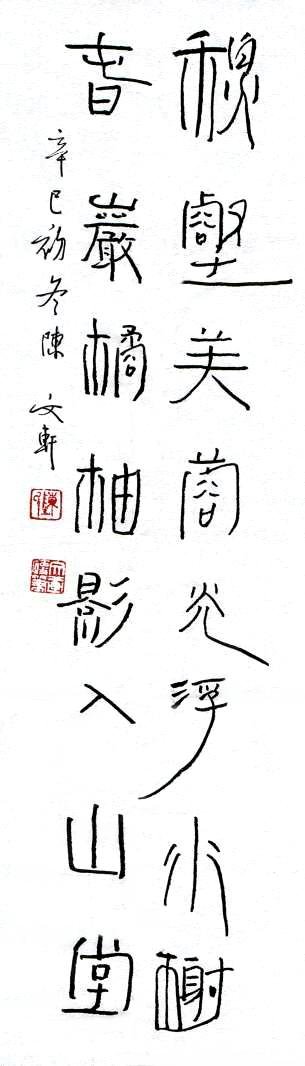 壑美光浮水榭
巖橘柚影入山堂
辛巳初冬陳文軒